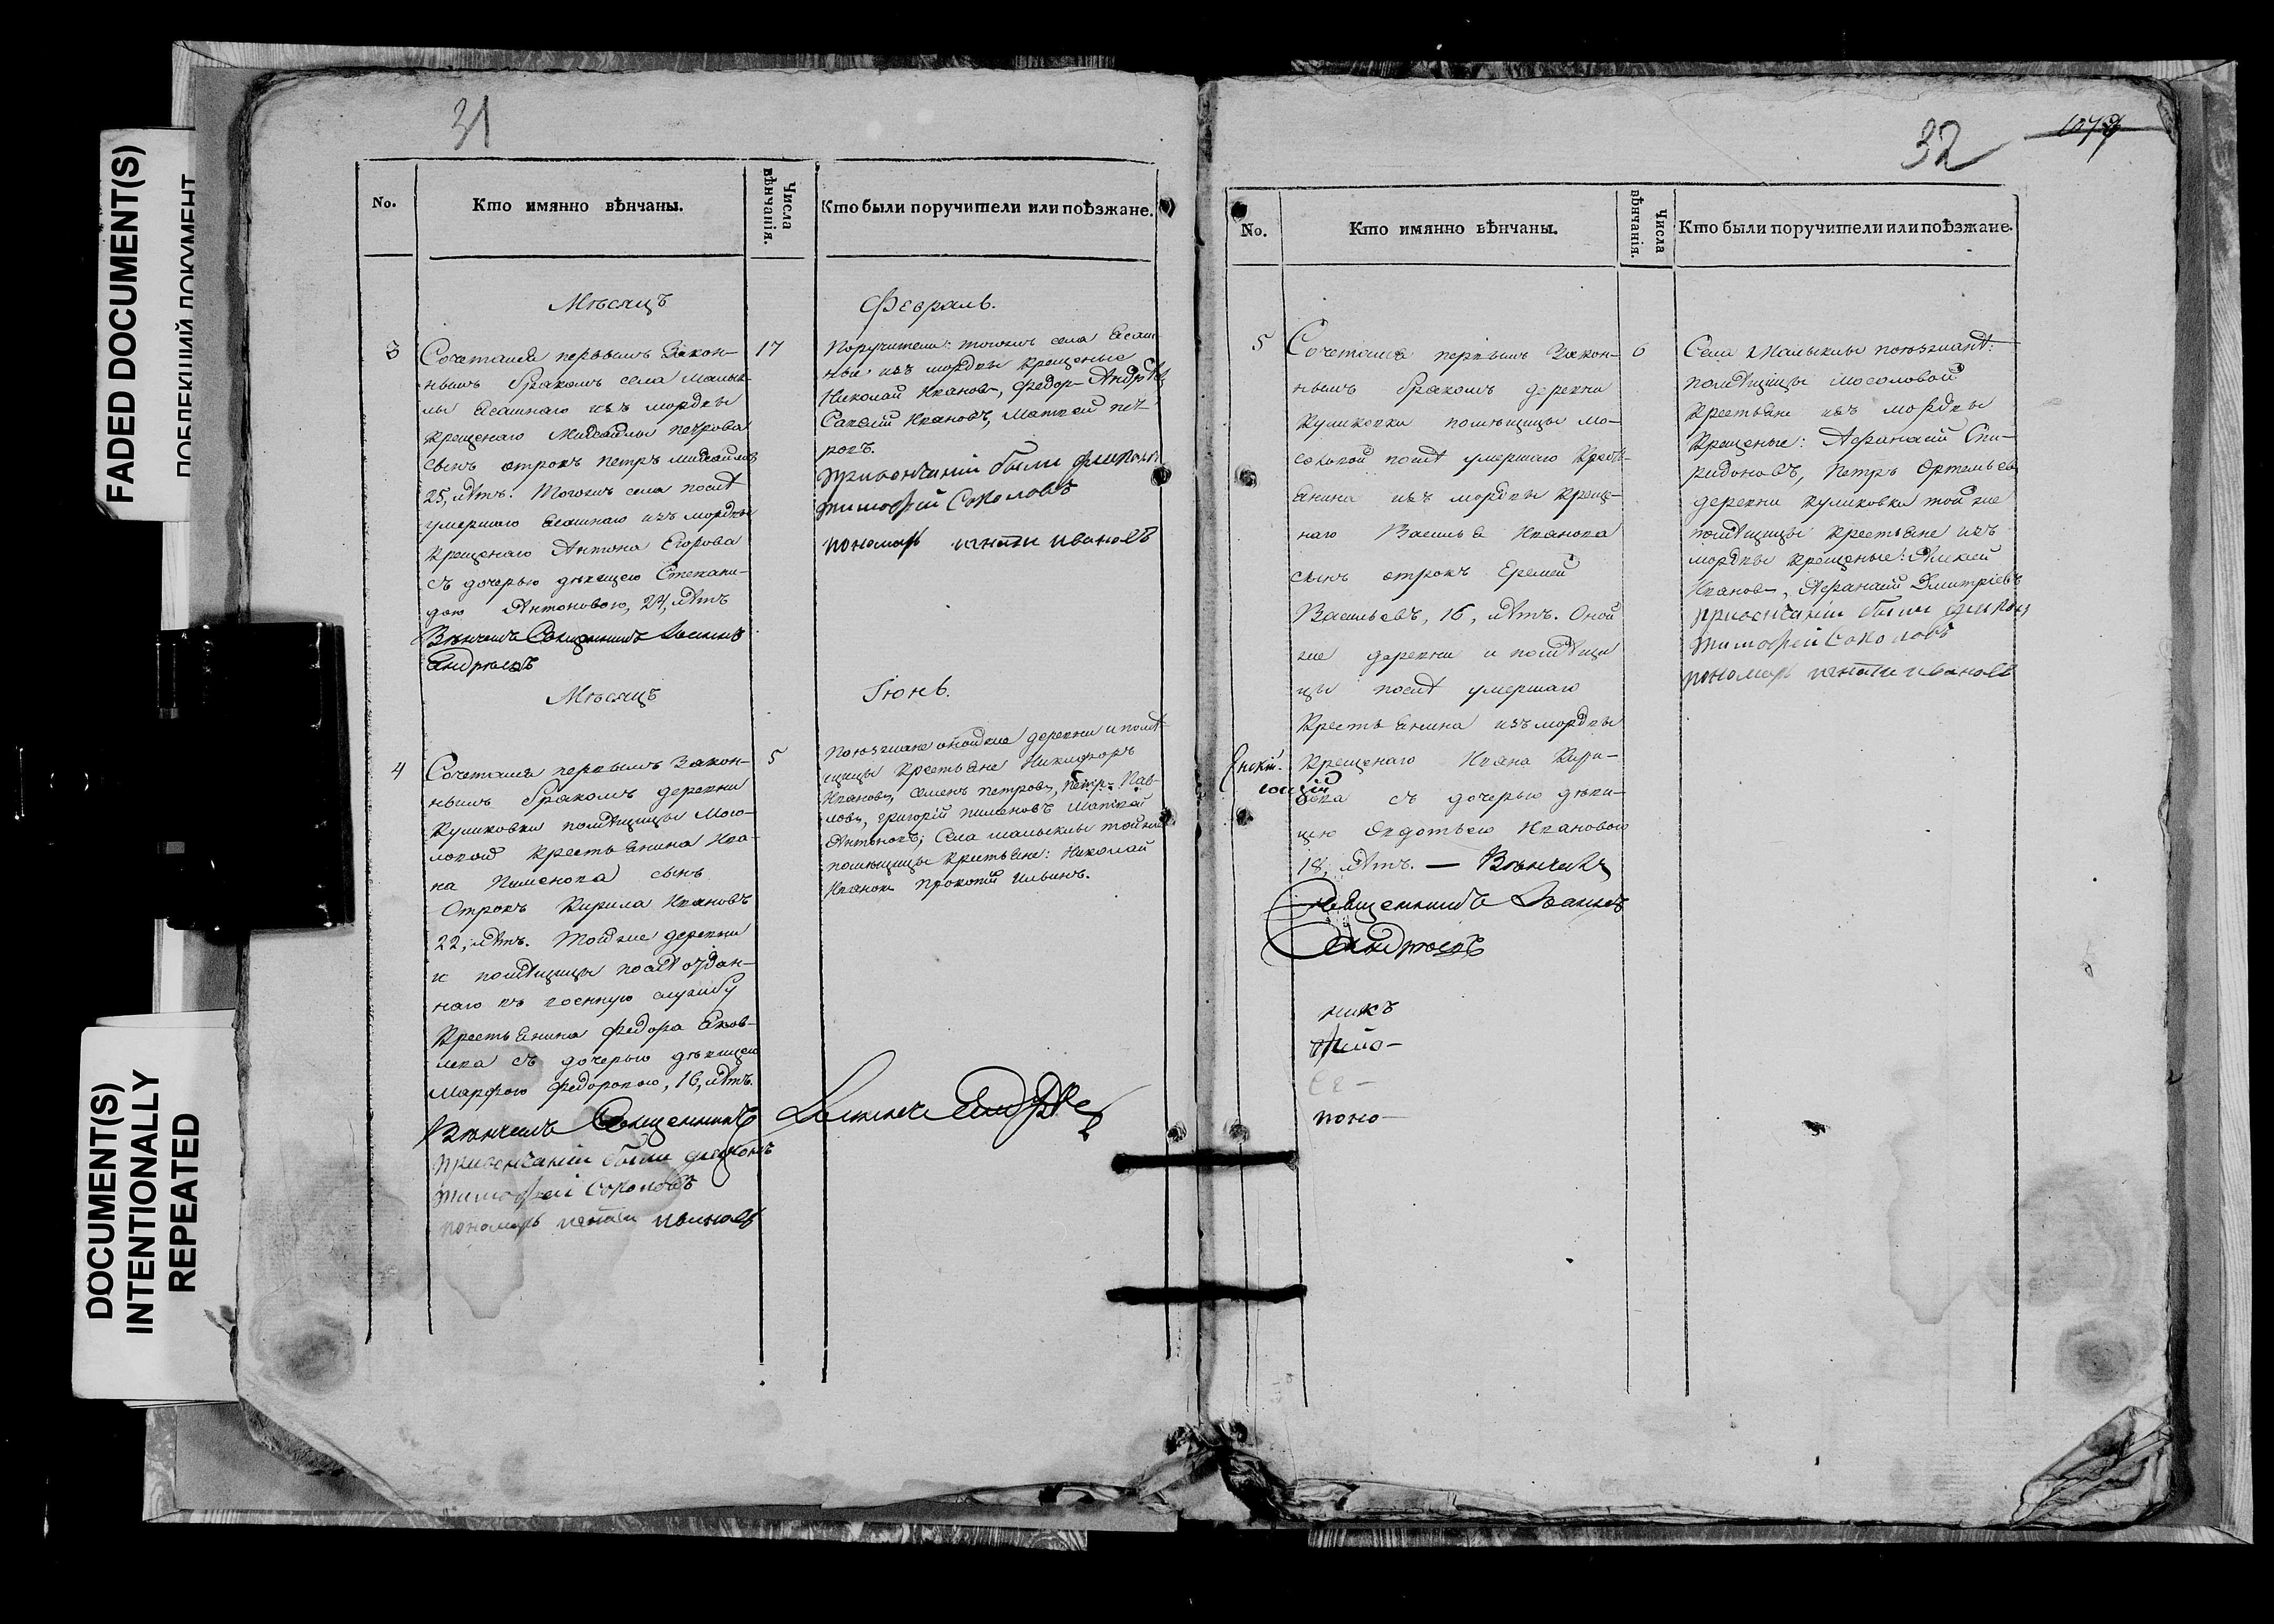 FADED DOCUMENT(S)
DOCUMENT(S)
INTENTIONALLY
REPEATED
31
No.
Кто имянно вѣнчаны.
Числа
вѣнчанія.
Кто были поручители или поѣзжане.
Мѣсяцъ
Февраль.
3
Сочетался первымъ закон-
нымъ бракомъ села Малык-
лы ясашнаго изъ мордвы
крещенаго Михайлы Петрова
сынъ отрокъ Петръ Михайловъ
25, лѣтъ. Тогожъ села послѣ
умершаго ясашнаго изъ мордвы
крещенаго Антона Егорова
съ дочерью дѣвицею Степани-
дою Антоновою, 24, лѣтъ
Вѣнчалъ Священникъ Іоаннъ
Андреевъ
17
Поручители: тогожъ села ясаш-
ные изъ мордвы крещеные
Николай Иванов, Федор Андрѣ
Савелій Ивановъ, Матвей Пет-
ровъ.
При венчаніи были дияконъ
Тимофей Соколовъ
пономарь Игнати Ивановъ
Мѣсяцъ
Іюнь.
4
Сочетался первымъ закон-
нымъ бракомъ деревни
Куликовки помѣщицы Мосо-
ловой крестьянина Ива-
на Пименова сынъ
Отрокъ Кирила Ивановъ
22, лѣтъ. Той же деревни
и помѣщицы послѣ отдан-
наго въ военную службу
крестьянина Федора Яков-
лева съ дочерью дѣвицею
Марфою Федоровою, 16, лѣтъ.
Вѣнчалъ Священникъ Іоаннъ Андрѣев
При венчаніи были дияконъ
Тимофей Соколовъ
пономарь Игнати Ивановъ
5
Поѣзжане оной же деревни и помѣ-
щицы крестьяне Никифоръ
Иванов, Семенъ Петров, Петр Пав-
лов, Григорій Пименовъ Матвей
Антоновъ; Села Малыклы той же
помѣщицы крестьяне: Николай
Иванов Прокопій Ильинъ.
32
No.
Кто имянно вѣнчаны.
Числа
вѣнчанія.
Кто были поручители или поѣзжане.
5
Сочетался первымъ закон-
нымъ бракомъ деревни
Куликовки помѣщицы Мо-
соловой послѣ умершаго кресть-
янина изъ мордвы креще-
наго Василья Иванова
сынъ отрокъ Еремей
Васильевъ, 16, лѣтъ. Оной
же деревни и помѣщи
цы послѣ умершаго
крестьянина изъ мордвы
крещенаго Ивана Кири-
лова съ дочерью дѣви-
цею Овдотьею Ивановою
18, лѣтъ. — Вѣнчалъ
Священникъ Іоаннъ
Андреевъ
6
Села Малыклы поѣзжанѣ:
помѣщицы Мосоловой
крестьяне изъ мордвы
крещеные: Афанасій Спи-
ридоновъ, Петръ Ортемьев
деревни Куликовки той же
помѣщицы крестьяне изъ
мордвы крещеные: Алексей
Иванов, Афанасій Дмитріевъ
При венчаніи были дияконъ
Тимофей Соколовъ
пономарь Игнати Ивановъ
никъ
поно-